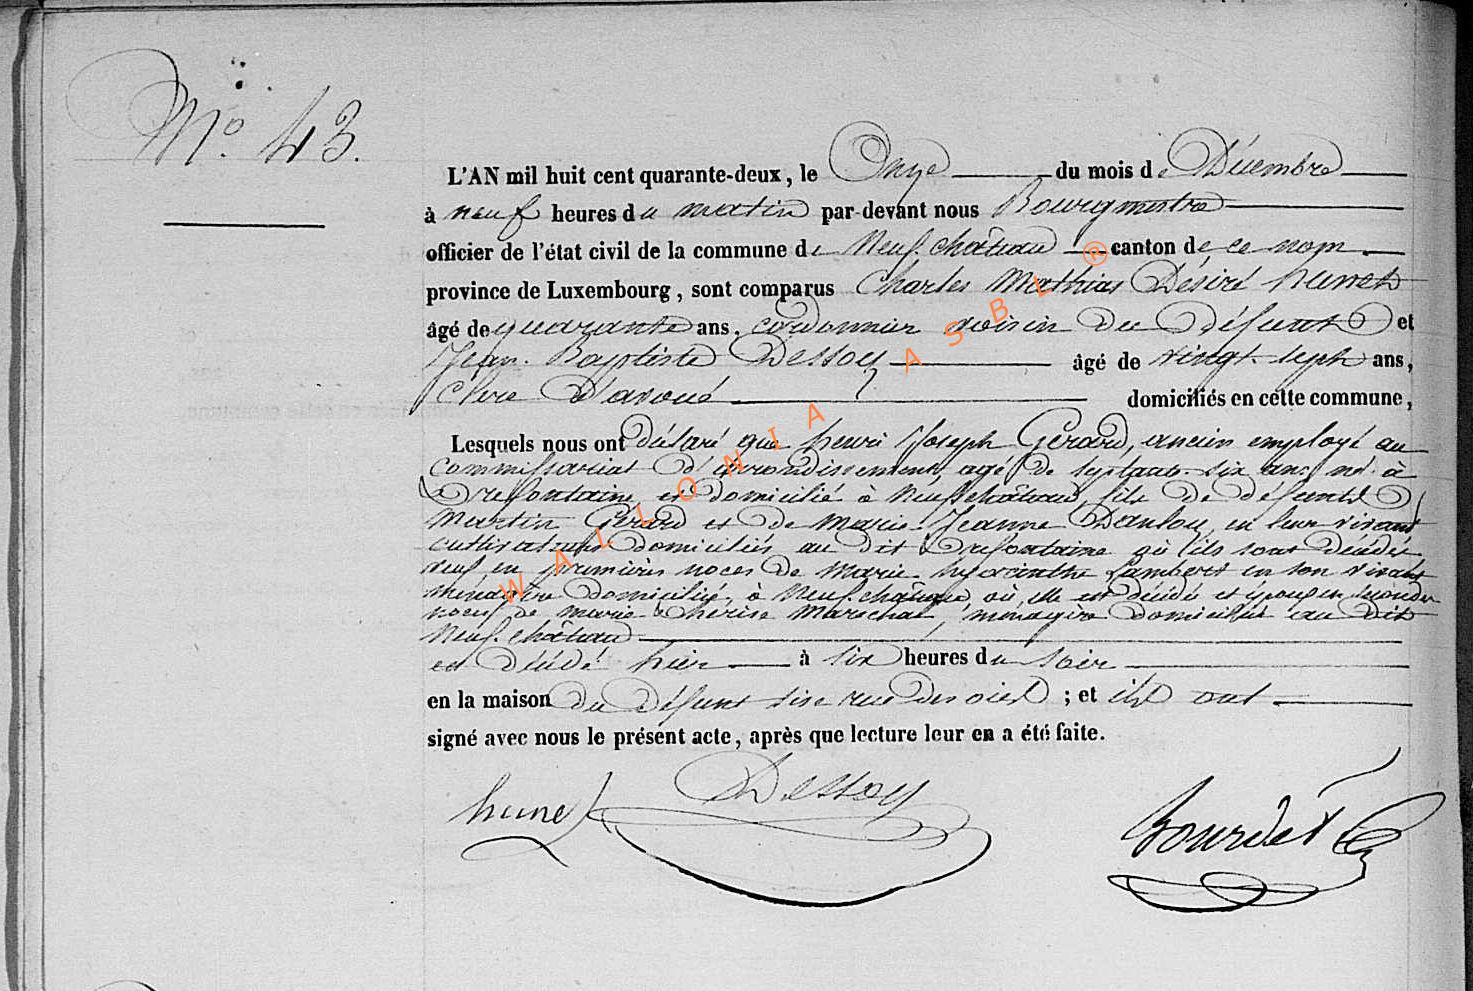 N.º 43.
L'AN mil huit cent quarante-deux, le Onze du mois de Décembre
à neuf heures du matin par-devant nous Bourgmestre
officier de l'état civil de la commune de Neufchâteau canton de ce nom
province de Luxembourg, sont comparus Charles Mathias Désiré hunet
âgé de quarante ans, cordonnier voisin du Défunt et
Jean-Baptiste Dessoy âgé de vingt-sept ans,
Clerc d'avoué domiciliés en cette commune,
Lesquels nous ont déclaré que henri Joseph Gérard, ancien employé au
commissariat d'arrondissement, agé de septante-six ans, né à
Orefontaine et domicilié à Neufchâteau, fils de défunts
Martin Gérard et de Marie-Jeanne Daulou, en leur vivant
cultivateurs domiciliés au dit Orefontaine où ils sont décédés
veuf en premières noces de Marie-hyacinthe Lambert en son vivant
ménagère domiciliée à Neufchâteau où elle est décédée et époux en secondes
noces de Marie-thérèse Maréchal, ménagère domiciliée au dit
Neufchâteau
est décédé hier à six heures du soir
en la maison du Défunt sise rue ; et ils ont
signé avec nous le présent acte, après que lecture leur en a été faite.
hunet Dessoy Bourdet
WALLONIA ASBL ®